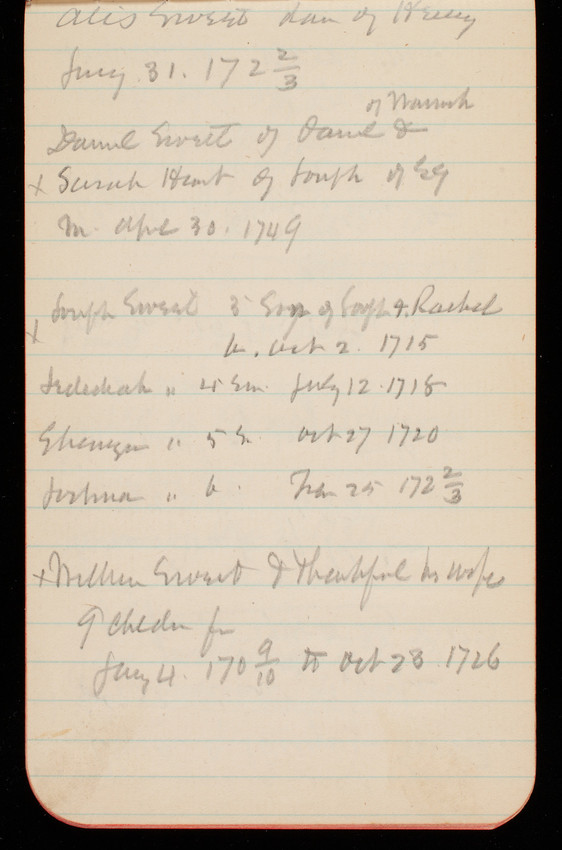 Alis Ewest dau of Henry
Jany 31. 172 2/3
of Warwick
Daniel Ewest of Daniel &
x Sarah Hunt of Joseph of EG
M. Apl 30. 1749
x Joseph Ewest 3 Son of Joseph & Rachel
b. Oct 2. 1715
Jedediah " 4 Son July 12. 1718
Ebenezer " 5 S. Oct 27 1720
Joshua " 6 . Jan 25 172 2/3
x William Ewest & Thankful his wife
9 Children fr
Jany 4. 170 9/10 to Oct 28 1726